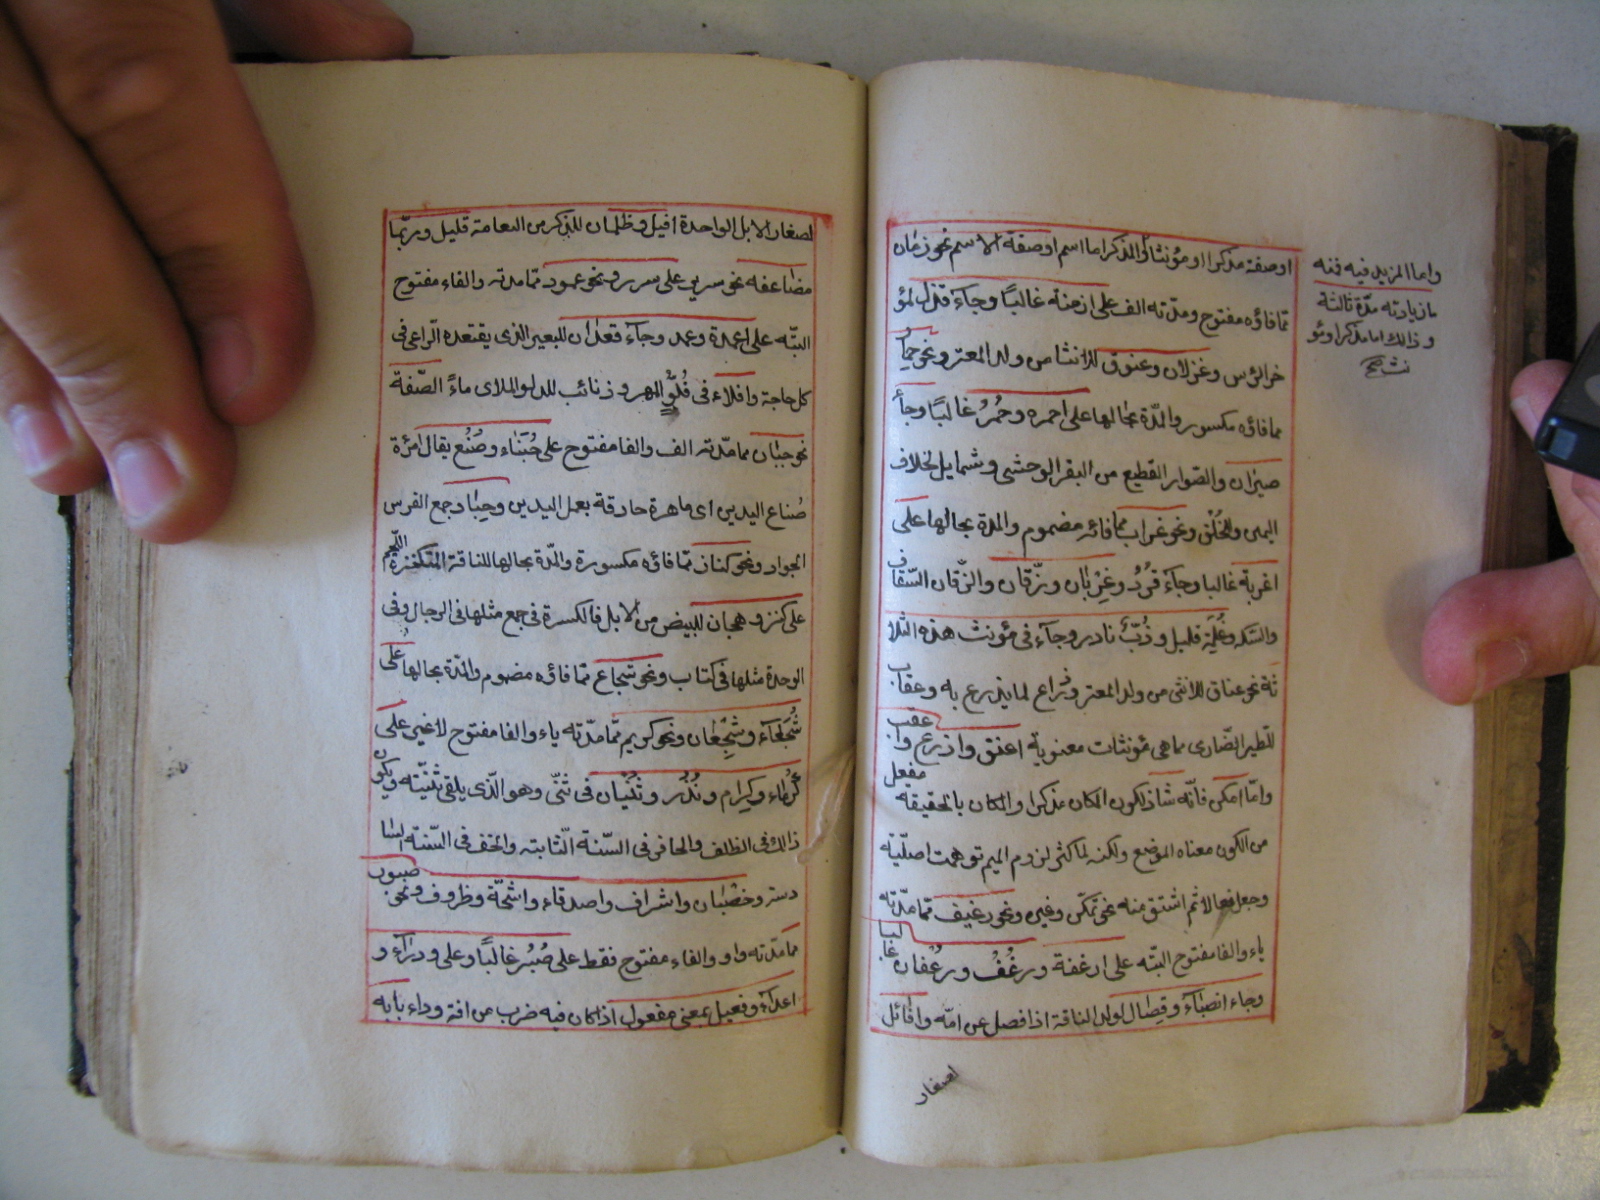 او صفة مذكرا او مؤنثا والمذكر اما اسم او صفة الاسم نحو زمان
مما فاؤه مفتوح ومدّته الف على ازمنة غالبًا وجاء قذل لمؤ
خر الرؤس وغزلان وعنوق للانثا من ولد المعتر ونحو حمار
مما فاؤه مكسور والمدّة بحالها على احمره وحُمرُ غالبًا وجاء
صيران والصّوار القطيع من البقر الوحشى وشمايل لخلاف
اليمى وللخُلْق ونحو غراب مما فائه مضموم والمدة بحالها على
اغربة غالبا وجاء قُرُدُ وغِرْبان وزقّان والزّقان السّقاف
والسّكه وغُلِمَة قليل وذُبّ نادر وجاء فى مؤنث هذه الثلا
ثة نحو عناق للانثى من ولد المعتر وذراع لما يذرع به وعقاب
للّطير الضّارى مما هى مؤنثات معنوية اعنق واذرع واعقب
وامّا امكن فانّه شاذ لكون المكان مذكرا والمكان بالحقيقة مفعل
من الكون معناه الموضع ولكنه لما كثر لزوم الميم توهمت اصليّة
وجعل فعالا ثم اشتق منه نحو تمكّن وغيره ونحو رغيف مما مدّته
ياء والفا مفتوح البتّه على ارغفة ورغُفُ ورُغْفان غالبا
وجاء انصباء وفِصَال لولد الناقة اذا فصل عن امّه وافائل
لصغار
واما المزيد فيه فنه
ما زيادته مدّة ثالثة
وذالك اما مذكرا او مؤ
نث صح
لصغار الابل الواحدة افيل وظلمان للذكر من النعامة قليل وربّما
مضاعفه نحو سرير على سرر ونحو عمود مما مدته والفاء مفتوح
البتّه على اعمدة وعمد وجاء قعدان للبعير الذى يقتعده الرّاعى فى
كل حاجة وافلاء فى فُلُوٍّ المهر وذنائب للدلو الملاى ماءً الصّفة
نحو جبان مما مدّته الف والفا مفتوح على جُبَنَاء وصُنُع يقال امرئة
صُناع اليدين اى ماهرة حادقة بعمل اليدين وجِيَاد جمع الفرس
الجواد ونحو كناز مما فاؤه مكسورة والمدّة بحالها للناقة المتكنزة اللّحم
على كنز وهجان للبيض من الابل فالكسرة فى جمع مثلها فى الرجال وفى
الوحدة مثلها فى كتاب ونحو شجاع مما فاؤه مضموم والمدّة بحالها على
شُجَعَاء وشِجْعان ونحو كريم مما مدّته ياء والفا مفتوح لا غير على
كُرَماء وكِرام ونُذُر وثُنْيان فى ثنىّ وهو الّذى يلقى ثنيّته ويكون
ذالك فى الظلف والحافر فى السّنة الثّالثة والخف فى السّنة السا
دسة وخصْيان واشراف واصدقاء واشحّة وظروف ونحو صبور
مما مدّته واو والفاء مفتوح فقط على صُبُر غالبًا وعلى ودراء و
اعداء وفعيل بمعنى مفعول اذا كان فيه ضرب من افة وداء بابه